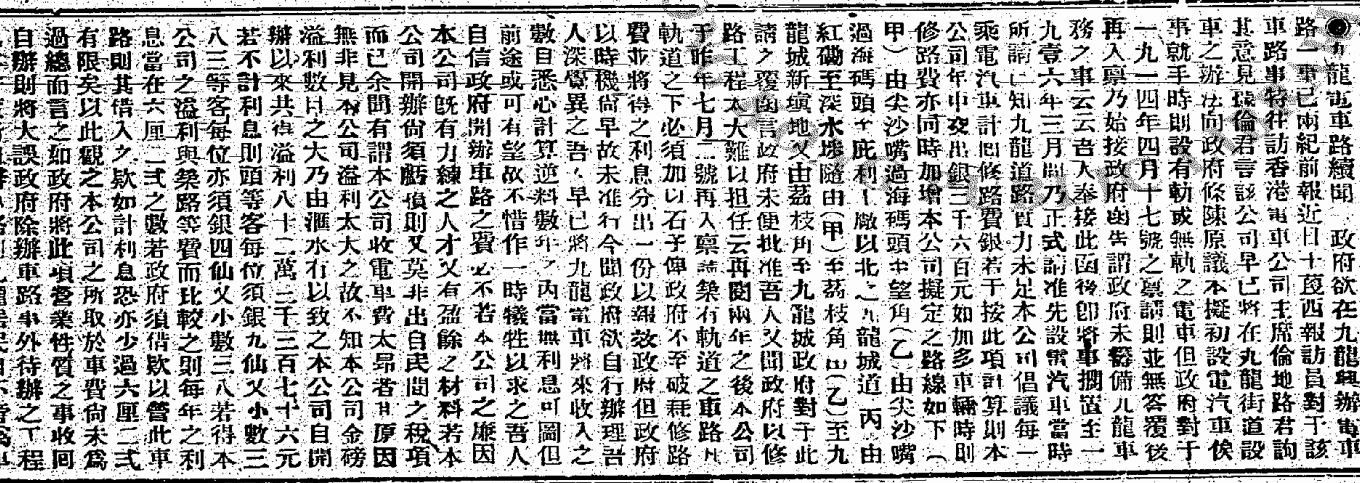 ●九龍電車路續聞　政府欲在九龍興辦電車
路一事已兩紀前報近日十⿸西報訪員對于該
車路事特往訪香港電車公司主席倫地路君詢
其意見據倫君言該公司早已將在九龍街道設
車之辦法向政府條陳原議本擬初設電汽車俟
事就手時則設有軌或無軌之電車但政府對于
一九一四年四月十七號之稟請則並無答覆後
再入稟乃始接政府函告謂政府未齊備九龍車
務之事云云吾人奉接此函後卽將車擱置至一
九壹六年三月間乃正式請准先設電汽車當時
所謂已知九龍道路實力未足本公司倡議每一
乘電汽車計四修路費銀若干按此項計算則本
公司年中交出銀三千六百元如加多車輛時則
修路費亦同時加增本公司擬定之路線如下（
甲）由尖沙嘴過海碼頭至望角（乙）由尖沙嘴
過海碼頭至庇利船廠以北之九龍城道　丙　由
紅磡至深水埗隨由（甲）至荔枝角由（乙）至九
龍城新填地又由荔枝角至九龍城政府對于此
請之覆函言政府未便批准吾人又聞政府以修
路工程太大難以担任云再閱兩年之後本公司
于昨年七月二號再入稟請築有軌道之車路凡
軌道之下必須加以石子俾政府不至破耗修路
費並將得之利息分出一份以報效政府但政府
以時機尙早故未准行今聞政府欲自行辦理吾
人深覺異之吾人早已將九龍電車將來收入之
數目悉心計算逆料數年之內當無利息可圖但
前途或可有望故不惜作一時犧牲以求之吾人
自信政府開辦車路之費必不若本公司之廉因
本公司旣有力練之人才又有盈餘之材料若本
公司開辦尙須虧損則又莫非出自民間之稅項
而已余聞有謂本公司收電車費太昂者其原因
無非見本公司溢利太大之故不知本公司金磅
溢利數目之大乃由滙水有以致之本公司自開
辦以來共得溢利八十二萬二千三百七十六元
若不計利息則頭等客每位須銀九仙又小數三
八三等客每位亦須銀四仙又小數三八若得本
公司之溢利與築路等費而比較之則每年之利
息當在六厘二式之數若政府須借欵以營此車
路則其借入之欵如計利息恐亦少過六厘二式
有限矣以此觀之本公司之所取於車費尙未爲
過總而言之如政府將此項營業性質之事收回
自辦則將大誤政府除辦車路事外待辦之工程